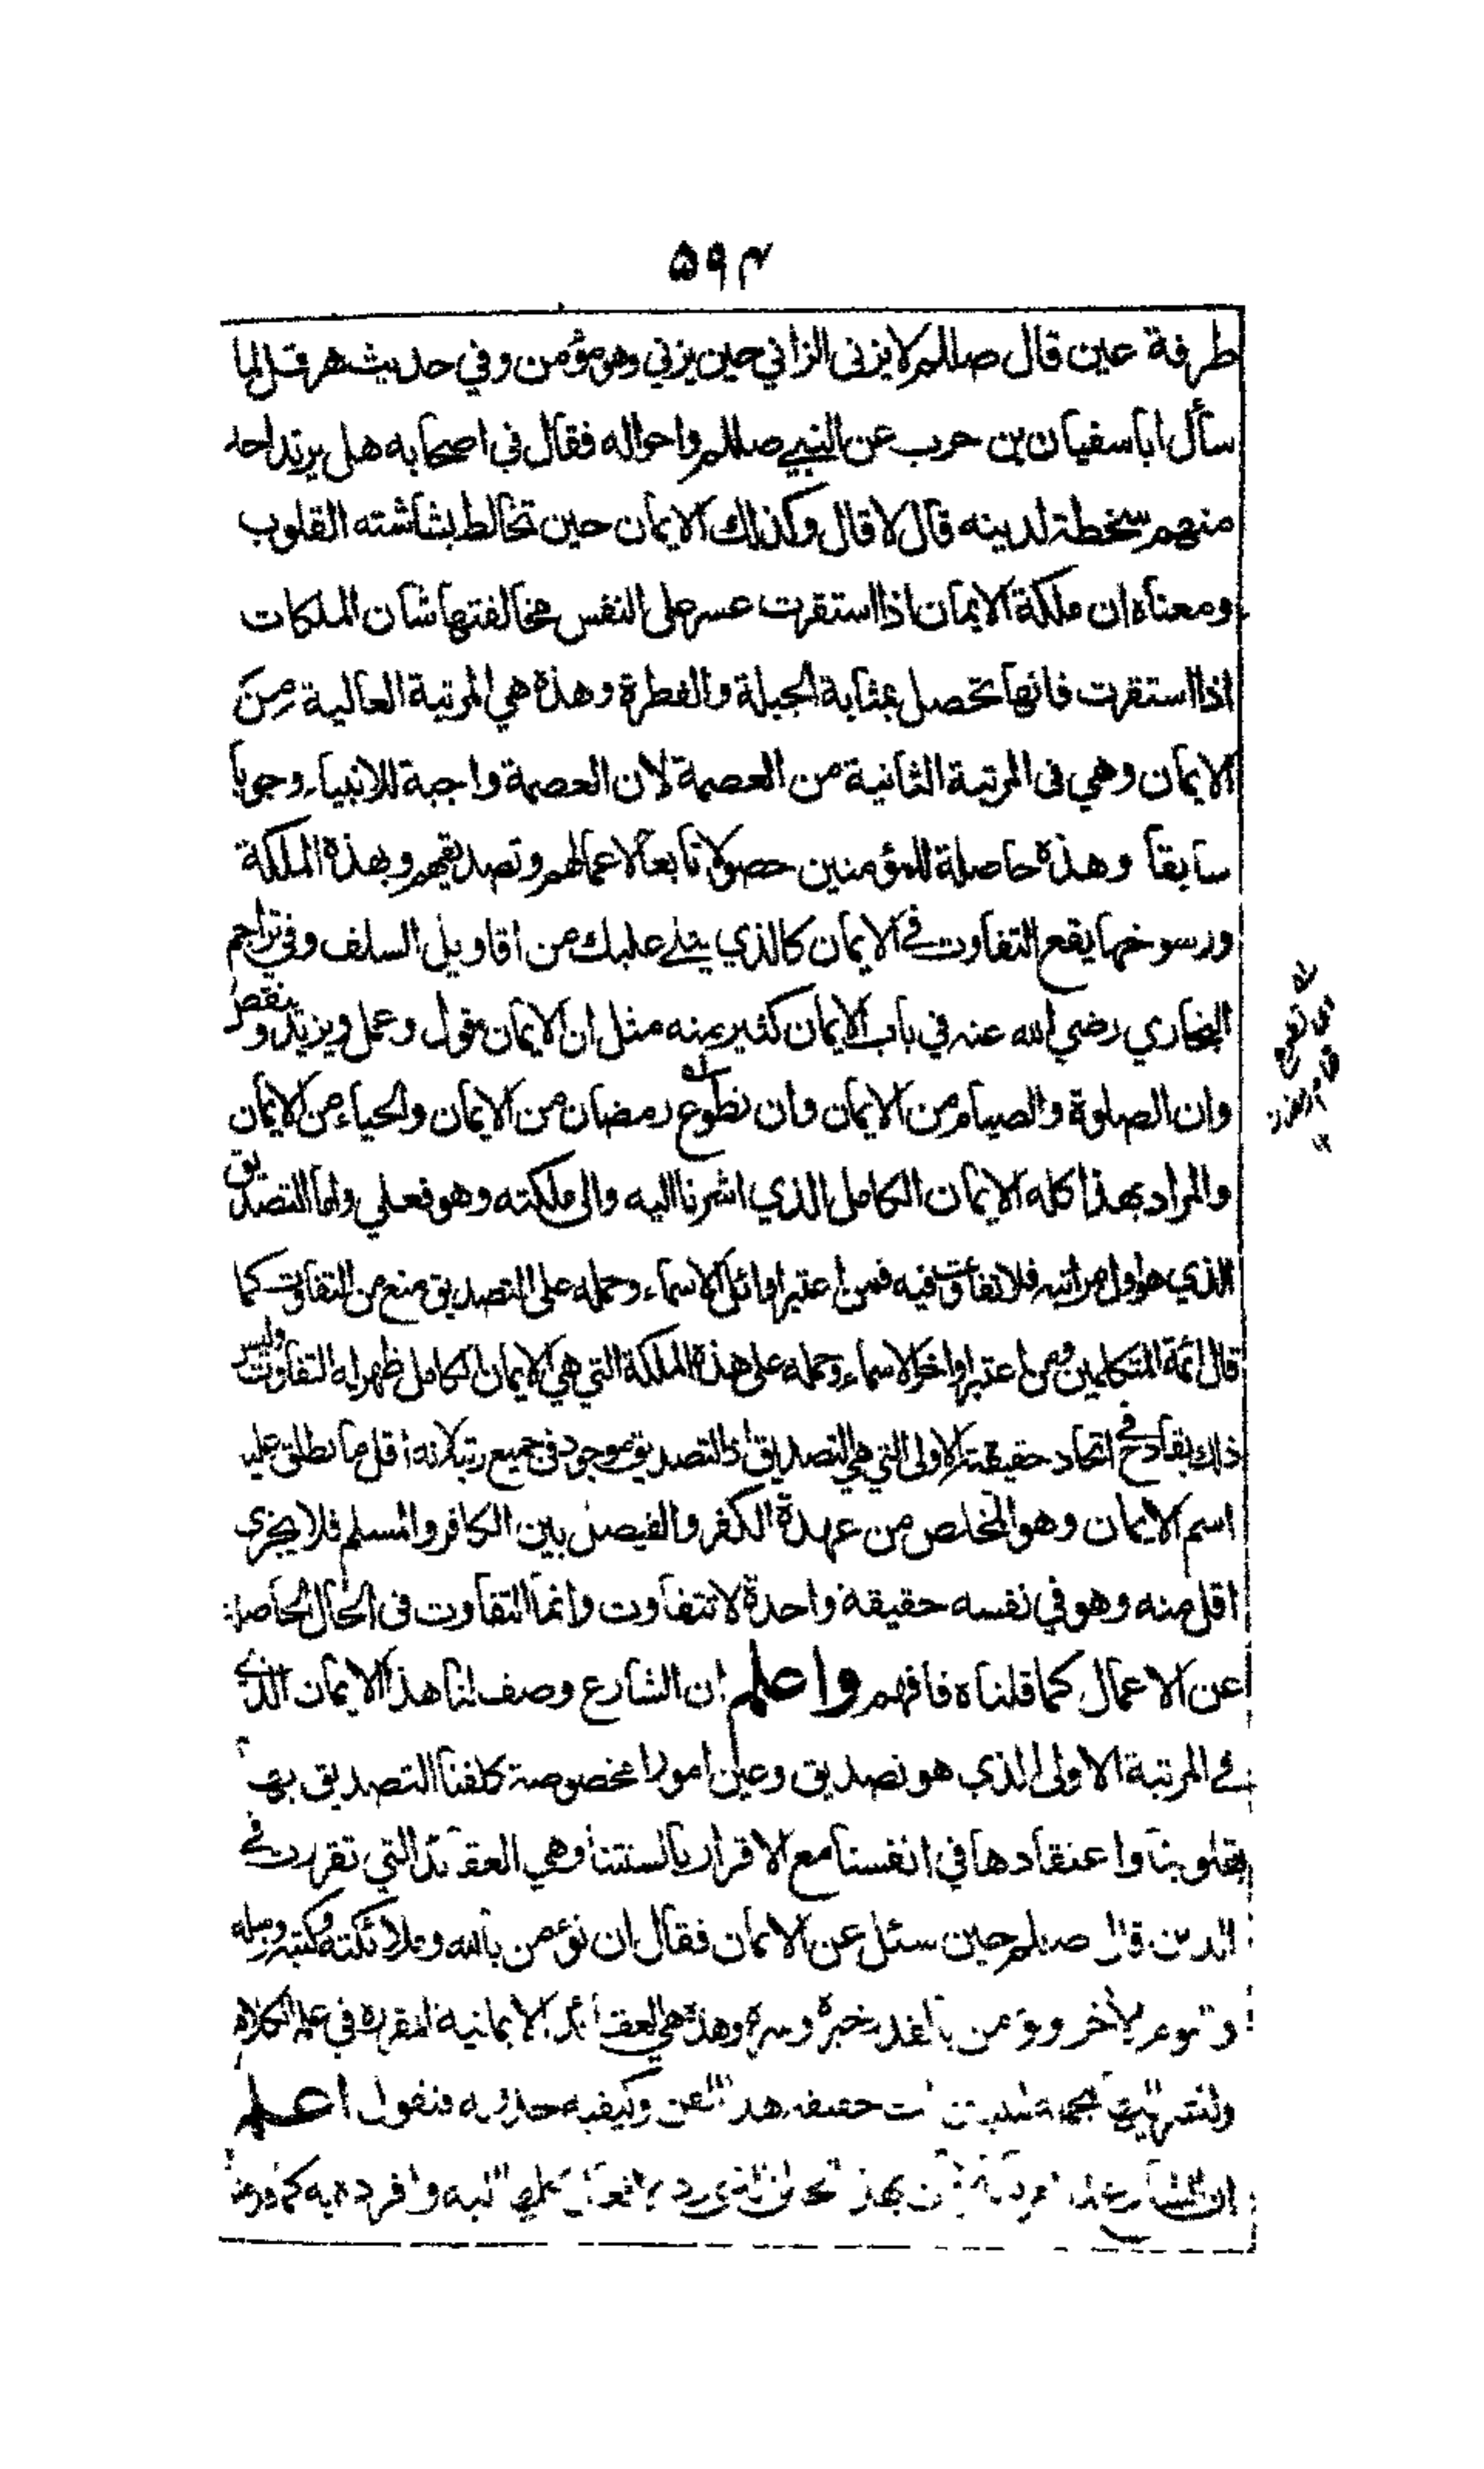 ۵۹۴
طرفة عين قال صللم لا يزنى الزاني حين يزني وهو مؤمن وفي حديث هرقل لما
سأل اباسفيان بن حرب عن النبي صللم واحواله فقال في اصحابه هل يرتد احد
منهم سخطة لدينه قال لا قال وكذلك الايمان حين تخالط بشاشته القلوب
ومعناه ان ملكة الايمان اذا استقرت عسر على النفس مخالفتها شان الملكات
اذا استقرت فانها تحصل بمثابة الجبلة والفطرة وهذه هي المرتبة العالية من
الايمان وهي في المرتبة الثانية من العصمة لان العصمة واجبة للانبياء وجوبا
سابقا وهذه حاصلة للمؤمنين حصولا تابعا لاعمالهم وتصديقهم وبهذه الملكة
ورسوخها يقع التفاوت في الايمان كالذي يتلى عليك من اقاويل السلف وفي تراجم
البخاري رضي الله عنه في باب الايمان كثير منه مثل ان الايمان قول وعمل ويزيد وينقص
وان الصلوة والصيام من الايمان وان تطوع رمضان من الايمان والحياء من الايمان
والمراد بهذا كله الايمان الكامل الذي اشرنا اليه والى ملكته وهو فعلي واما التصديق
الذي هو اول مراتبه فلا تفاوت فيه فمن اعتبر اوائل الاسماء وحمله على التصديق منع من التفاوت كما
قال ائمة المتكلمين ومن اعتبر اواخر الاسماء وحمله على هذه الملكة التي هي الايمان الكامل ظهر له التفاوت وليس
ذلك بقادح في اتحاد حقيقته الاولى التي هي التصديق اذ التصديق موجود في جميع رتبه لانه اقل ما يطلق عليه
اسم الايمان وهو المخلص من عهدة الكفر والفيصل بين الكافر والمسلم فلا يجزى
اقل منه وهو في نفسه حقيقة واحدة لا تتفاوت وانما التفاوت في الحال الحاصلة
عن الاعمال كما قلناه فافهم واعلم ان الشارع وصف لنا هذا الايمان الذي
في المرتبة الاولى الذي هو تصديق وعين امورا مخصوصة كلفنا التصديق بها
بقلوبنا واعتقادها في انفسنا مع الاقرار بالسنتنا وهي العقائد التي تقررت في
الدين قال صللم حين سئل عن الايمان فقال ان تؤمن بالله وملائكته وكتبه ورسله
واليوم الآخر وتؤمن بالقدر خيره وشره وهذه هي العقائد الايمانية المقررة في علم الكلام
هذا الفن وكيفية حدوثه فنقول اعلم
ان الشارع